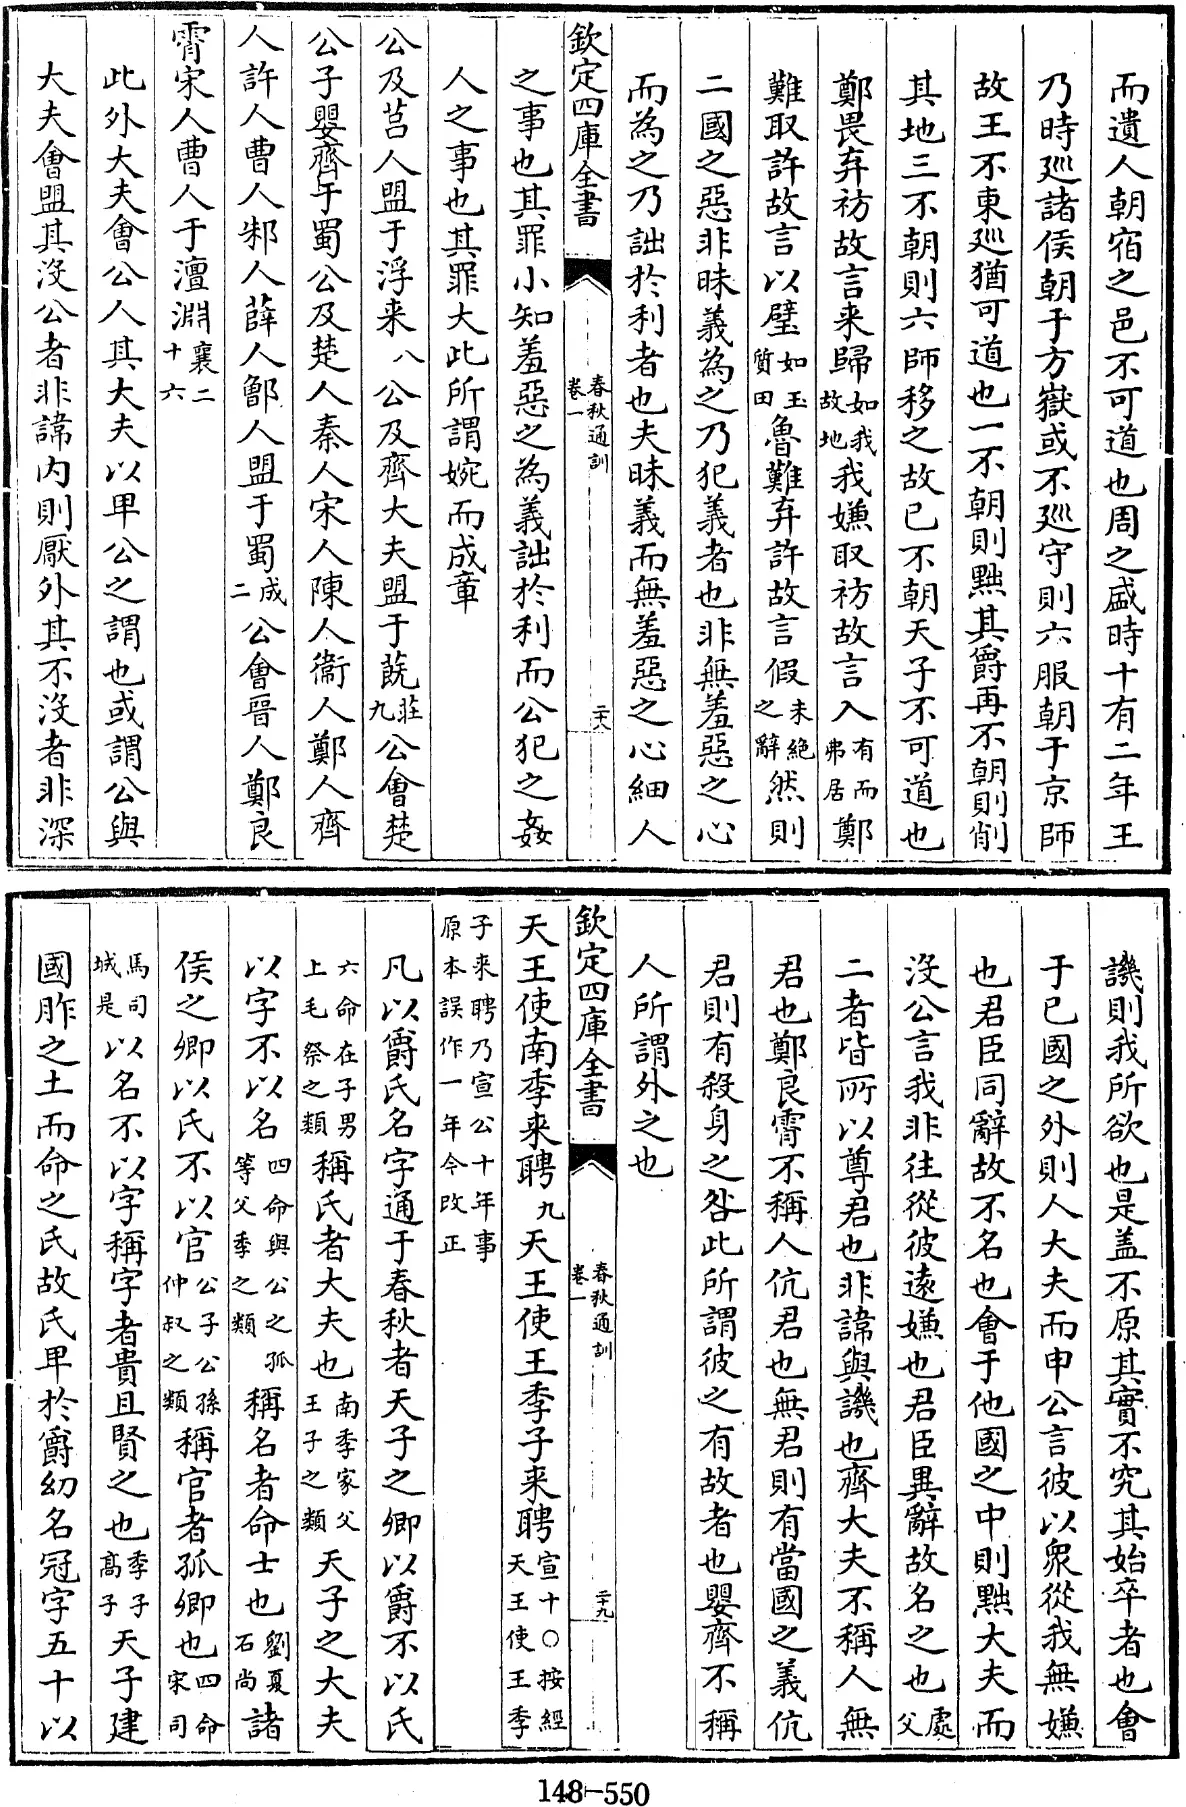 而遺人朝宿之邑不可道也周之盛時十有二年王
乃時廵諸侯朝于方嶽或不廵守則六服朝于京師
故王不東廵猶可道也一不朝則黜其爵再不朝則削
其地三不朝則六師移之故已不朝天子不可道也
鄭畏弃祊故言來歸如我故地我嫌取祊故言入有而弗居鄭
難取許故言以璧如玉質田魯難弃許故言假未絶之辭然則
二國之惡非昧義為之乃犯義者也非無羞惡之心
而為之乃詘於利者也夫昧義而無羞惡之心細人
欽定四庫全書
春秋通訓
卷一
二十八
之事也其罪小知羞惡之為義詘於利而公犯之姦
人之事也其罪大此所謂婉而成章
公及莒人盟于浮来八公及齊大夫盟于蔇莊九公會楚
公子嬰齊于蜀公及楚人秦人宋人陳人衞人鄭人齊
人許人曹人邾人薛人鄫人盟于蜀成二公會晉人鄭良
霄宋人曹人于澶淵襄二十六
此外大夫會公人其大夫以卑公之謂也或謂公與
大夫會盟其沒公者非諱内則厭外其不沒者非深
譏則我所欲也是盖不原其實不究其始卒者也會
于已國之外則人大夫而申公言彼以衆從我無嫌
也君臣同辭故不名也會于他國之中則黜大夫而
沒公言我非往從彼遠嫌也君臣異辭故名之也處父
二者皆所以尊君也非諱與譏也齊大夫不稱人無
君也鄭良霄不稱人伉君也無君則有當國之義伉
君則有殺身之咎此所謂彼之有故者也嬰齊不稱
人所謂外之也
欽定四庫全書
春秋通訓
卷一
二十九
天王使南季来聘九天王使王季子来聘宣十○按經天王使王季
子来聘乃宣公十年事原本誤作一年今改正
凡以爵氏名字通于春秋者天子之卿以爵不以氏
六命在子男上毛祭之類稱氏者大夫也南季家父王子之類天子之大夫
以字不以名四命與公之孤等父季之類稱名者命士也劉夏石尚諸
侯之卿以氏不以官公子公孫仲叔之類稱官者孤卿也四命宋司
馬司城是以名不以字稱字者貴且賢之也季子高子天子建
國胙之土而命之氏故氏卑於爵幼名冠字五十以
148-550